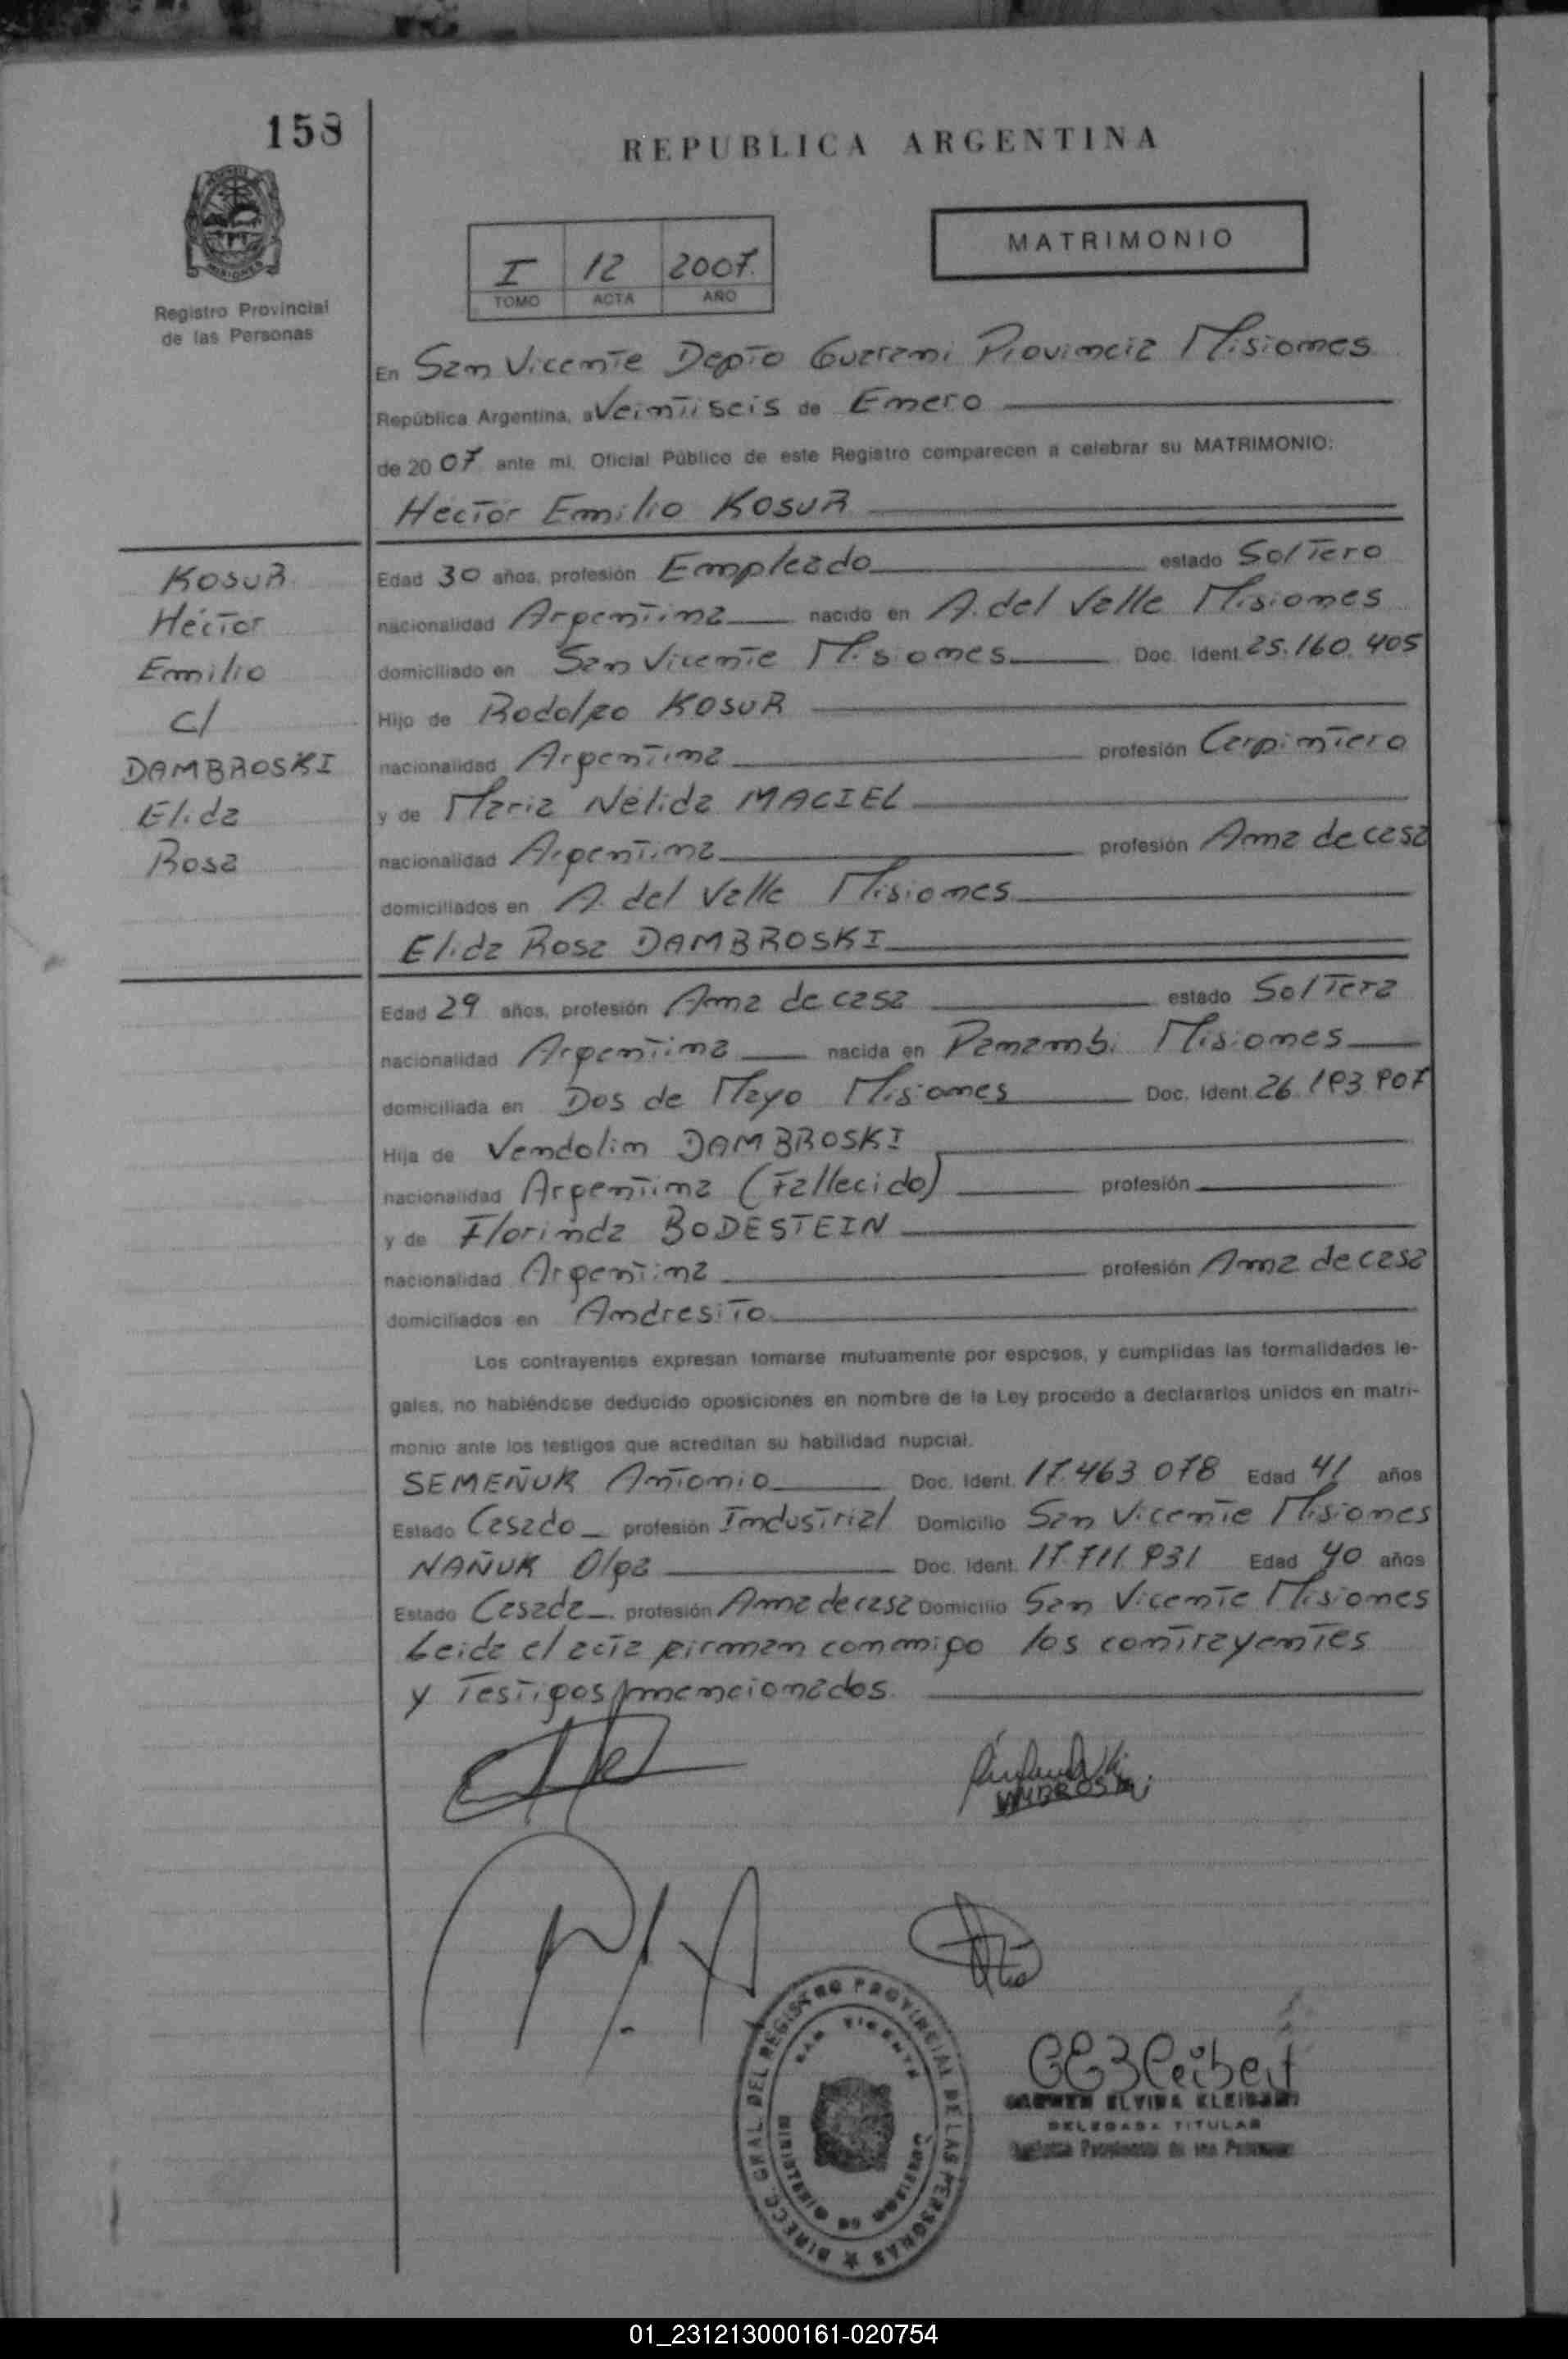 158
REPUBLICA ARGENTINA
MISIONES
Registro Provincial
de las Personas
I 12 2007
TOMO ACTA AÑO
MATRIMONIO
En San Vicente Depto Guarani Provincia Misiones
República Argentina, a Veintiseis de Enero
de 2007 ante mi, Oficial Público de este Registro comparecen a celebrar su MATRIMONIO:
Hector Emilio KOSUR
KOSUR
Héctor
Emilio
c/
DAMBROSKI
Elida
Rosa
Edad 30 años, profesión Empleado estado Soltero
nacionalidad Argentina nacido en A. del Valle Misiones
domiciliado en San Vicente Misiones Doc. Ident. 25.160.405
Hijo de Rodolfo KOSUR
nacionalidad Argentina profesión Carpintero
y de Maria Nélida MACIEL
nacionalidad Argentina profesión Ama de casa
domiciliados en A. del Valle Misiones
Elida Rosa DAMBROSKI
Edad 29 años, profesión Ama de casa estado Soltera
nacionalidad Argentina nacida en Panambi Misiones
domiciliada en Dos de Mayo Misiones Doc. Ident. 26.
Hija de Vendolin DAMBROSKI
nacionalidad Argentina (Fallecido) profesión
y de Florinda BODESTEIN
nacionalidad Argentina profesión Ama de casa
domiciliados en Andresito
Los contrayentes expresan tomarse mutuamente por esposos, y cumplidas las formalidades le-
gales, no habiéndose deducido oposiciones en nombre de la Ley procedo a declararlos unidos en matri-
monio ante los testigos que acreditan su habilidad nupcial.
SEMEÑUK Antonio Doc. Ident. 17.463.078 Edad 41 años
Estado Casado profesión Industrial Domicilio San Vicente Misiones
NAÑUK Olga Doc. Ident. 17.711.931 Edad 40 años
Estado Casada profesión Ama de casa Domicilio San Vicente Misiones
Leida el acta firman conmigo los contrayentes
y Testigos mencionados.
DIRECC. GRAL. DEL REGISTRO PROVINCIAL DE LAS PERSONAS
SAN VICENTE
MINISTERIO DE GOBIERNO
CARMEN ELVIRA KLEIBERT
DELEGADA TITULAR
Registro Provincial de las Personas
01_231213000161-020754